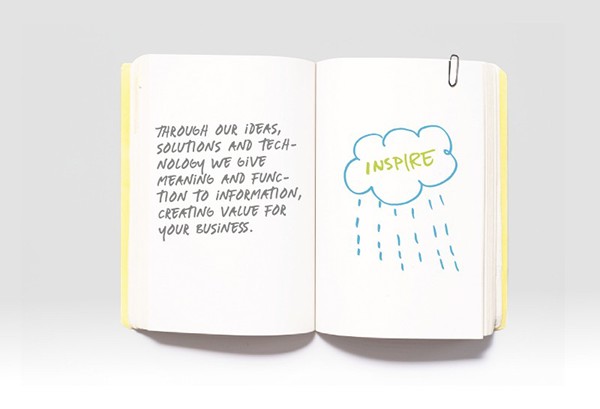 THROUGH OUR IDEAS,
SOLUTIONS AND TECH-
NOLOGY WE GIVE
MEANING AND FUNC-
TION TO INFORMATION,
CREATING VALUE FOR
YOUR BUSINESS.
INSPIRE